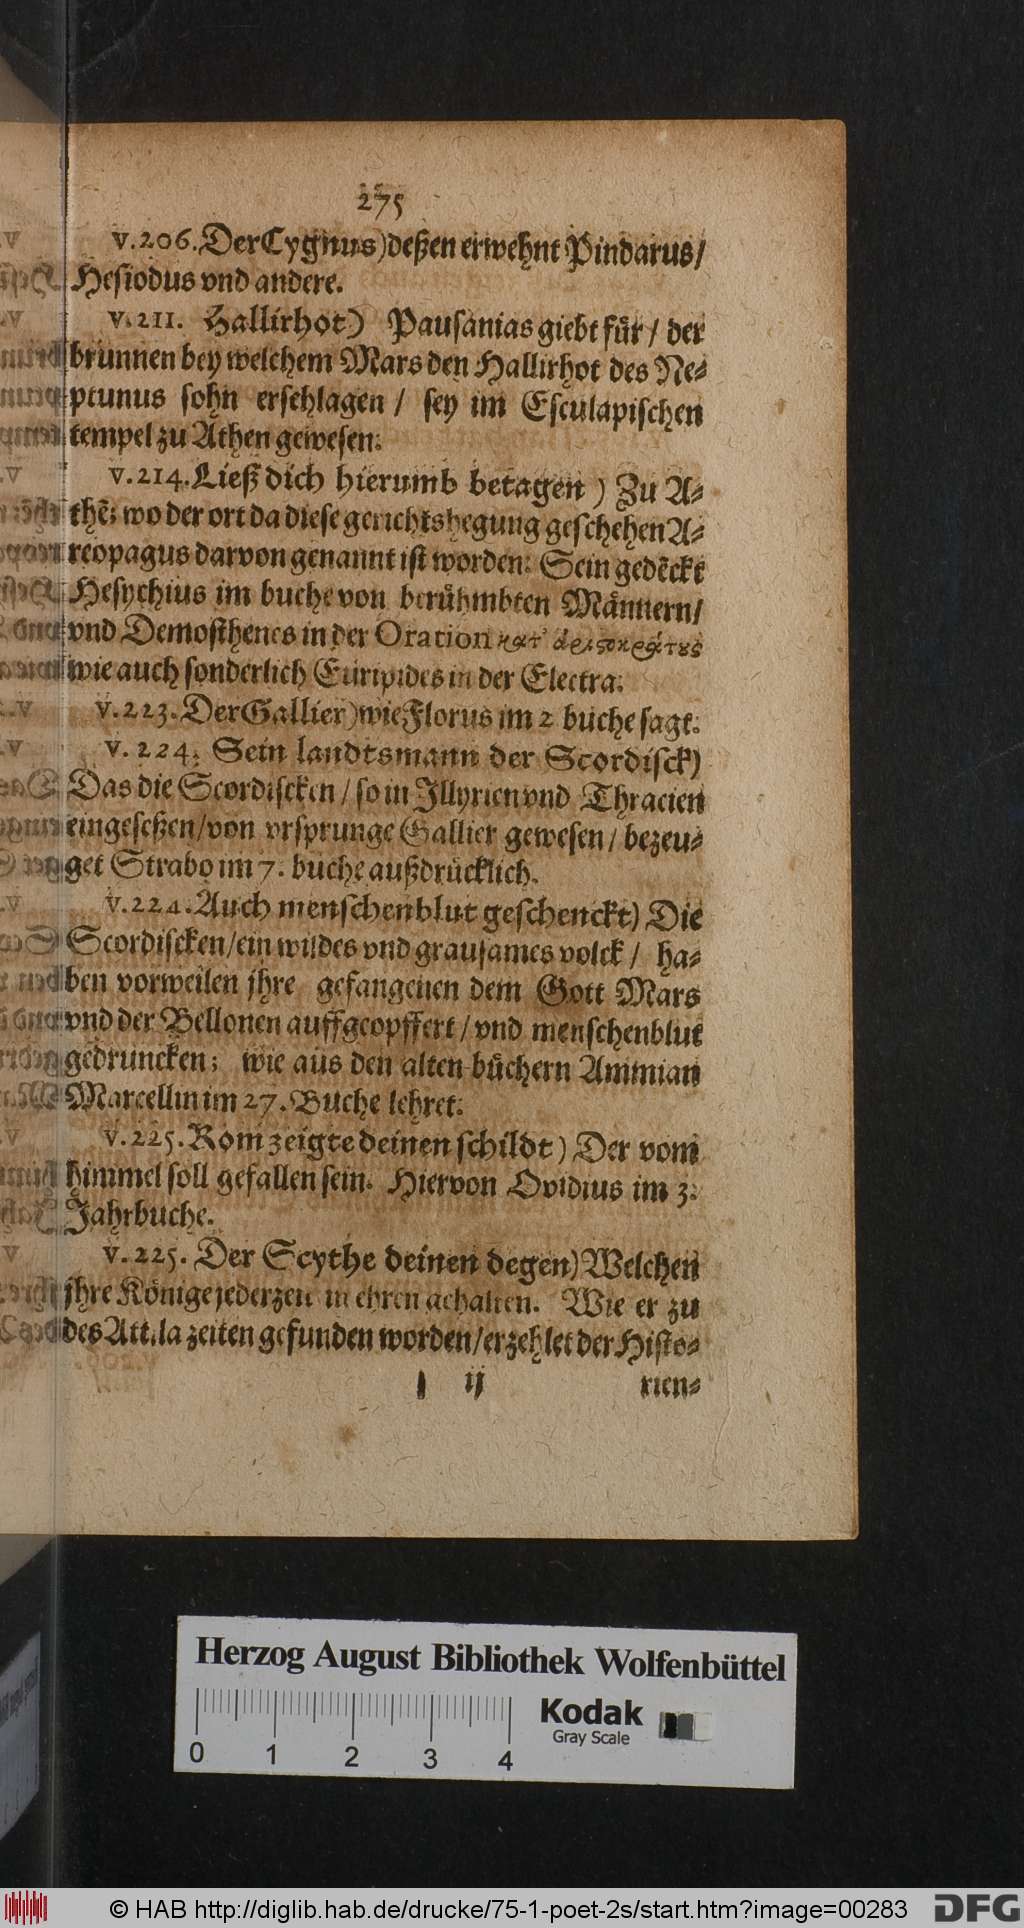 275
v.206. Der Cygnus) deßen erwehnt Pindarus/
Hesiodus vnd andere.
v.211. Hallirhot) Pausanias giebt fuͤr / der
brunnen bey welchem Mars den Hallirhot des Ne-
ptunus sohn erschlagen / sey im Esculapischen
tempel zu Athen gewesen.
v.214. Ließ dich hierumb betagen ) Zu A-
thẽ; wo der ort da diese gerichtshegung geschehen A-
reopagus darvon genannt ist worden: Sein gedẽckt
Hesychius im buche von beruͤhmbten Maͤnnern/
vnd Demosthenes in der Oration κατ' ἀριστοκράτους
wie auch sonderlich Euripides in der Electra.
v.223. Der Gallier) wie Florus im 2 buche sagt.
v. 224. Sein landtsmann der Scordisck)
Das die Scordiscken / so in Illyrien vnd Thracien
eingeseßen/ von vrsprunge Gallier gewesen / bezeu-
get Strabo im 7. buche außdruͤcklich.
v.224. Auch menschenblut geschenckt) Die
Scordiscken/ ein wildes vnd grausames volck / ha-
ben vorweilen jhre gefangenen dem Gott Mars
vnd der Bellonen auffgeopffert / vnd menschenblut
gedruncken; wie aus den alten buͤchern Ammian
Marcellin im 27. Buche lehret.
v.225. Rom zeigte deinen schildt ) Der vom
himmel soll gefallen sein. Hiervon Ovidius im 3.
Jahrbuche.
v. 225. Der Scythe deinen degen) Welchen
jhre Könige jederzeit in ehren gehalten. Wie er zu
des Attila zeiten gefunden worden/ erzehlet der Histo-
ij
rien-
Herzog August Bibliothek Wolfenbüttel
Kodak
Gray Scale
0 1 2 3 4
© HAB http://diglib.hab.de/drucke/75-1-poet-2s/start.htm?image=00283
DFG